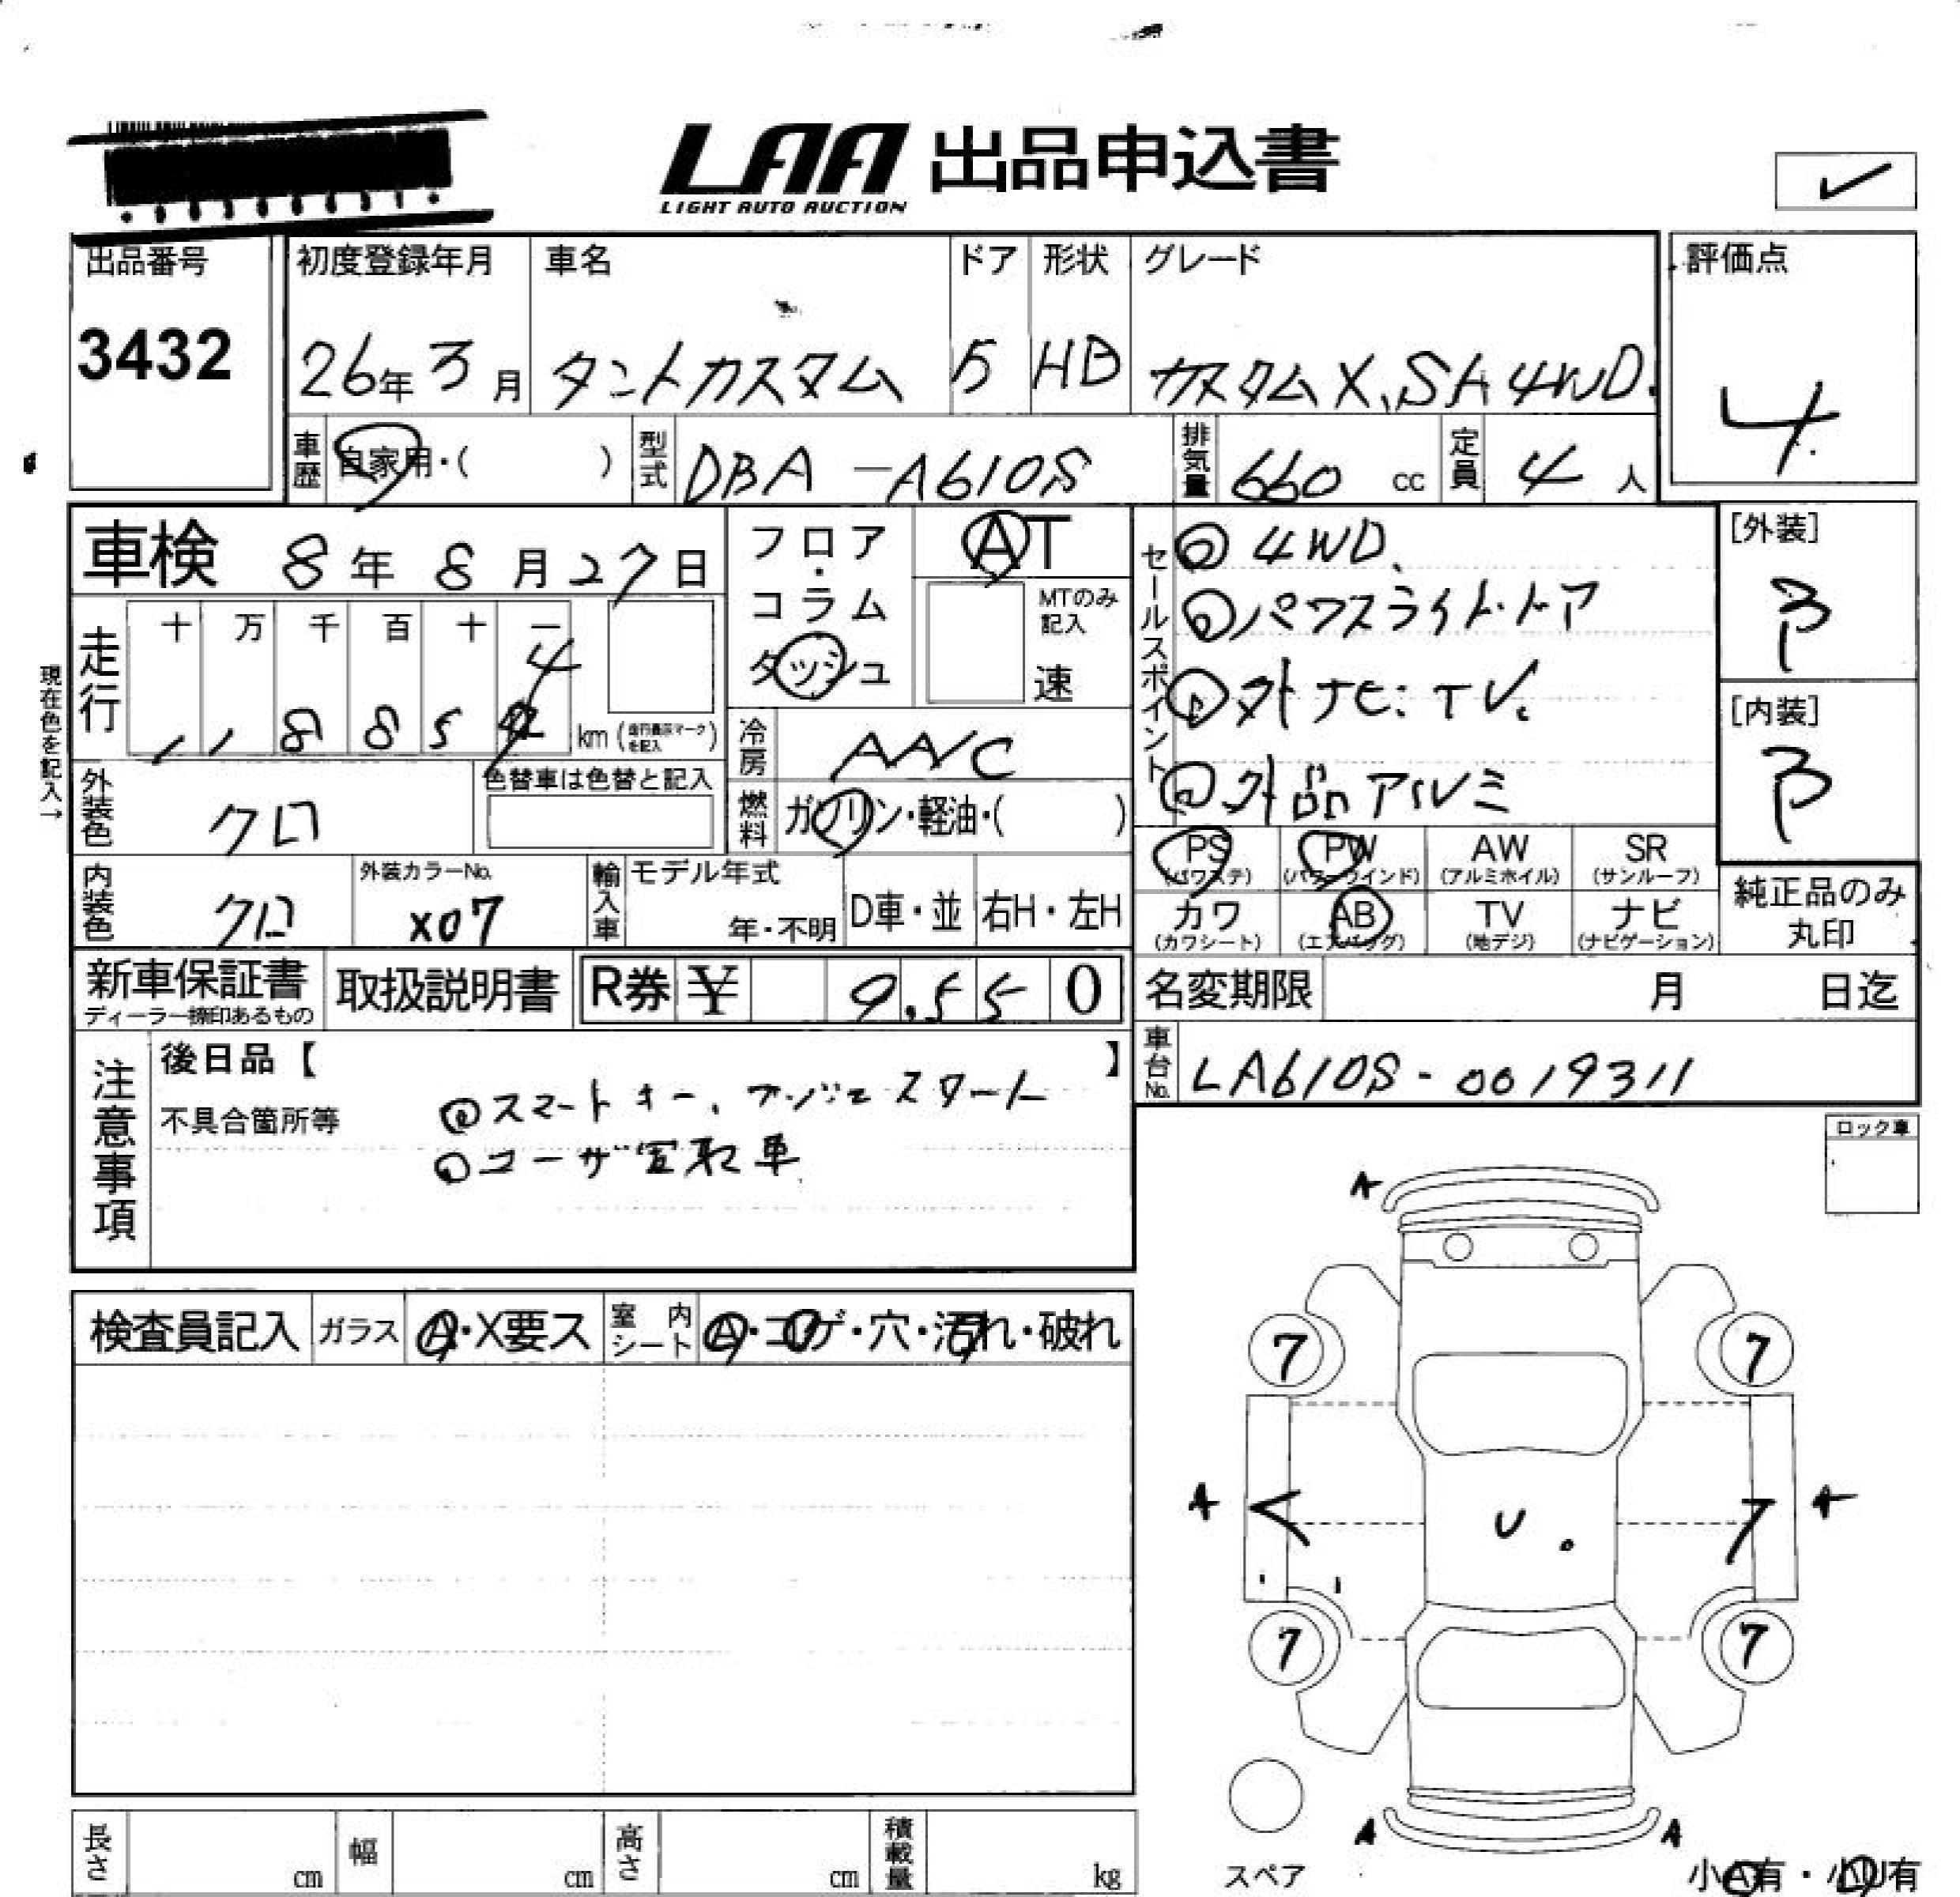 LAA 出品申込書
LIGHT AUTO AUCTION
出品番号
3432
初度登録年月 車名 ドア 形状 グレード
26年3月 タントカスタム 5 HB カスタムX,SA 4WD.
評価点
4
車歴 自家用・( ) 型式 DBA-A610S 排気量 660 cc 定員 4人
車検 8年8月27日
フロア・コラム
ダッシュ
AT
MTのみ記入
速
セールスポイント
4WD.
パワスライドドア
外ナビ・TV.
外品アルミ
[外装]
B
[内装]
B
現在色を記入→
走行
十 万 千 百 十 一
4
1 1 8 8 5
km (走行表示マークを記入)
冷房 AA/C
外装色 クロ
色替車は色替と記入
燃料 ガソリン・軽油・( )
PS (パワステ) PW (パワーウインド) AW (アルミホイル) SR (サンルーフ)
カワ (カワシート) AB (エアバッグ) TV (地デジ) ナビ (ナビゲーション)
純正品のみ丸印
内装色 クロ
外装カラーNo.
X07
輸入車 モデル年式
年・不明
D車・並 右H・左H
新車保証書
ディーラー捺印あるもの
取扱説明書
R券 ¥ 9,550
名変期限 月 日迄
車台No. LA610S-0019311
注意事項
後日品【 】
不具合箇所等
スマートキー、プッシュスタート
ユーザー買取車
ロック車
検査員記入 ガラス A・X要ス 室内シート A・コゲ・穴・汚れ・破れ
A
7 7
A A
U
7 7
A A
スペア
小A有・小U有
長さ cm 幅 cm 高さ cm 積載量 kg